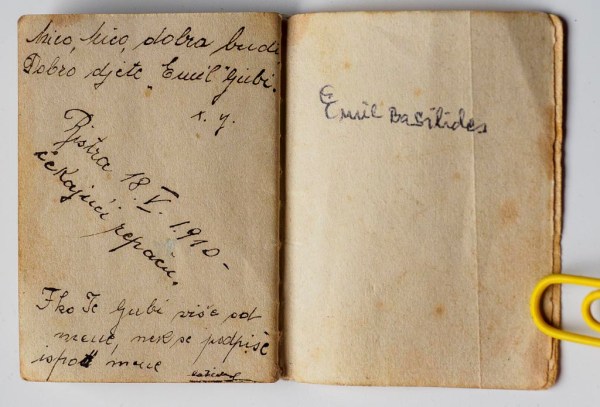 Mico, Mico, dobra budi
Dobro djete „Emil" ljubi.
x. y.
Bistra 18. V. 1910 -
čekajući repaču.
Ako Te ljubi više od
mene, nek se podpiše
ispod mene
Emil Basilides